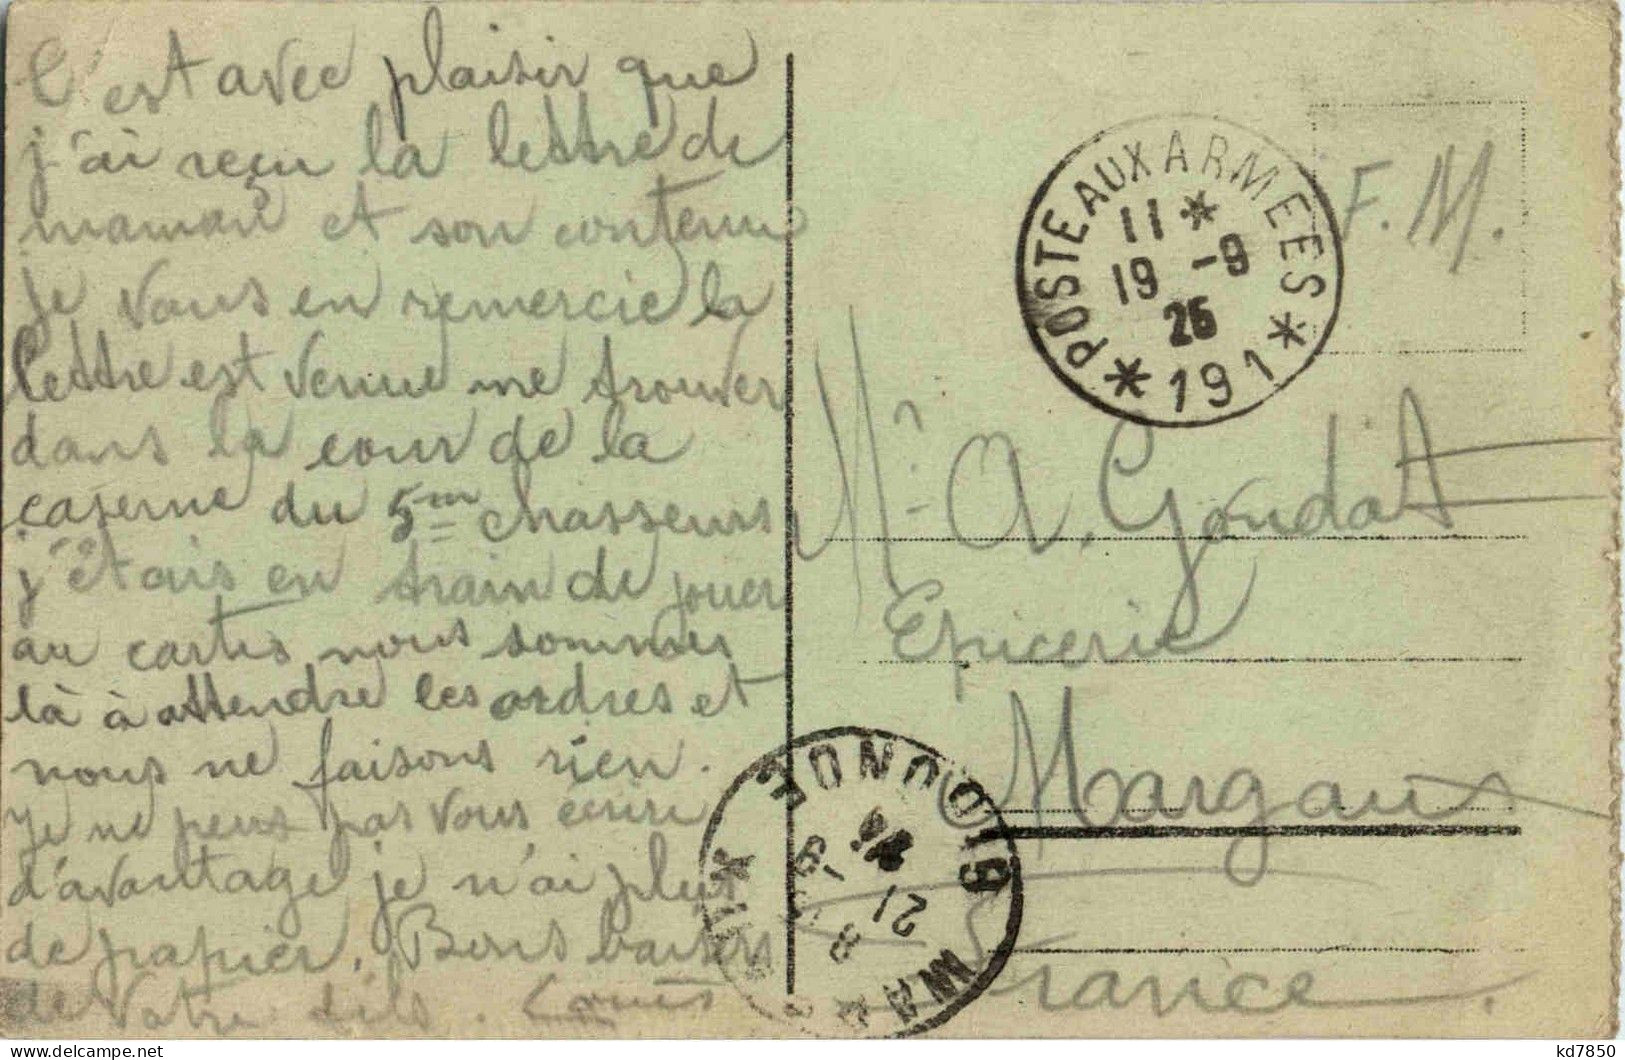 C'est avec plaisir que
j'ai reçu la lettre de
maman et son contenu
je vous en remercie la
lettre est venue me trouver
dans la cour de la
caserne du 5me chasseurs
j'étais en train de jouer
au cartes nous sommes
là à attendre les ordres et
nous ne faisons rien.
je ne peus pas vous écrire
d'avantage je n'ai plus
de papier. Bons baisers
de votre fils. Louis
POSTE AUX ARMEES
11 *
19 -9
26
* 191 *
F. M.
A. Goudat
Epicerie
Margaux
France
MARGAUX
GIRONDE
21 -9
26
kd7850